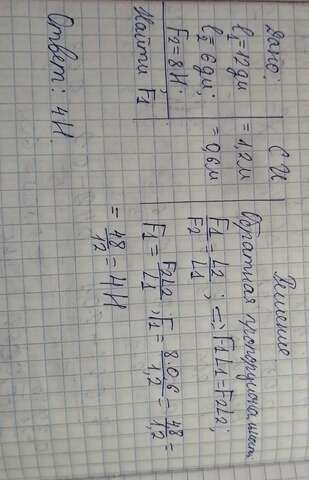 Дано:
l1 = 12дм
l2 = 6дм;
F2 = 8Н;
Найти F1
СИ
= 1,2м
= 0,6м
Решение
Обратная пропорциональность
F1/F2 = L2/L1; => F1L1 = F2L2;
F1 = F2L2/L1; F1 = 8 0,6/1,2 = 48/1,2 =
= 48/12 = 4Н
Ответ: 4Н